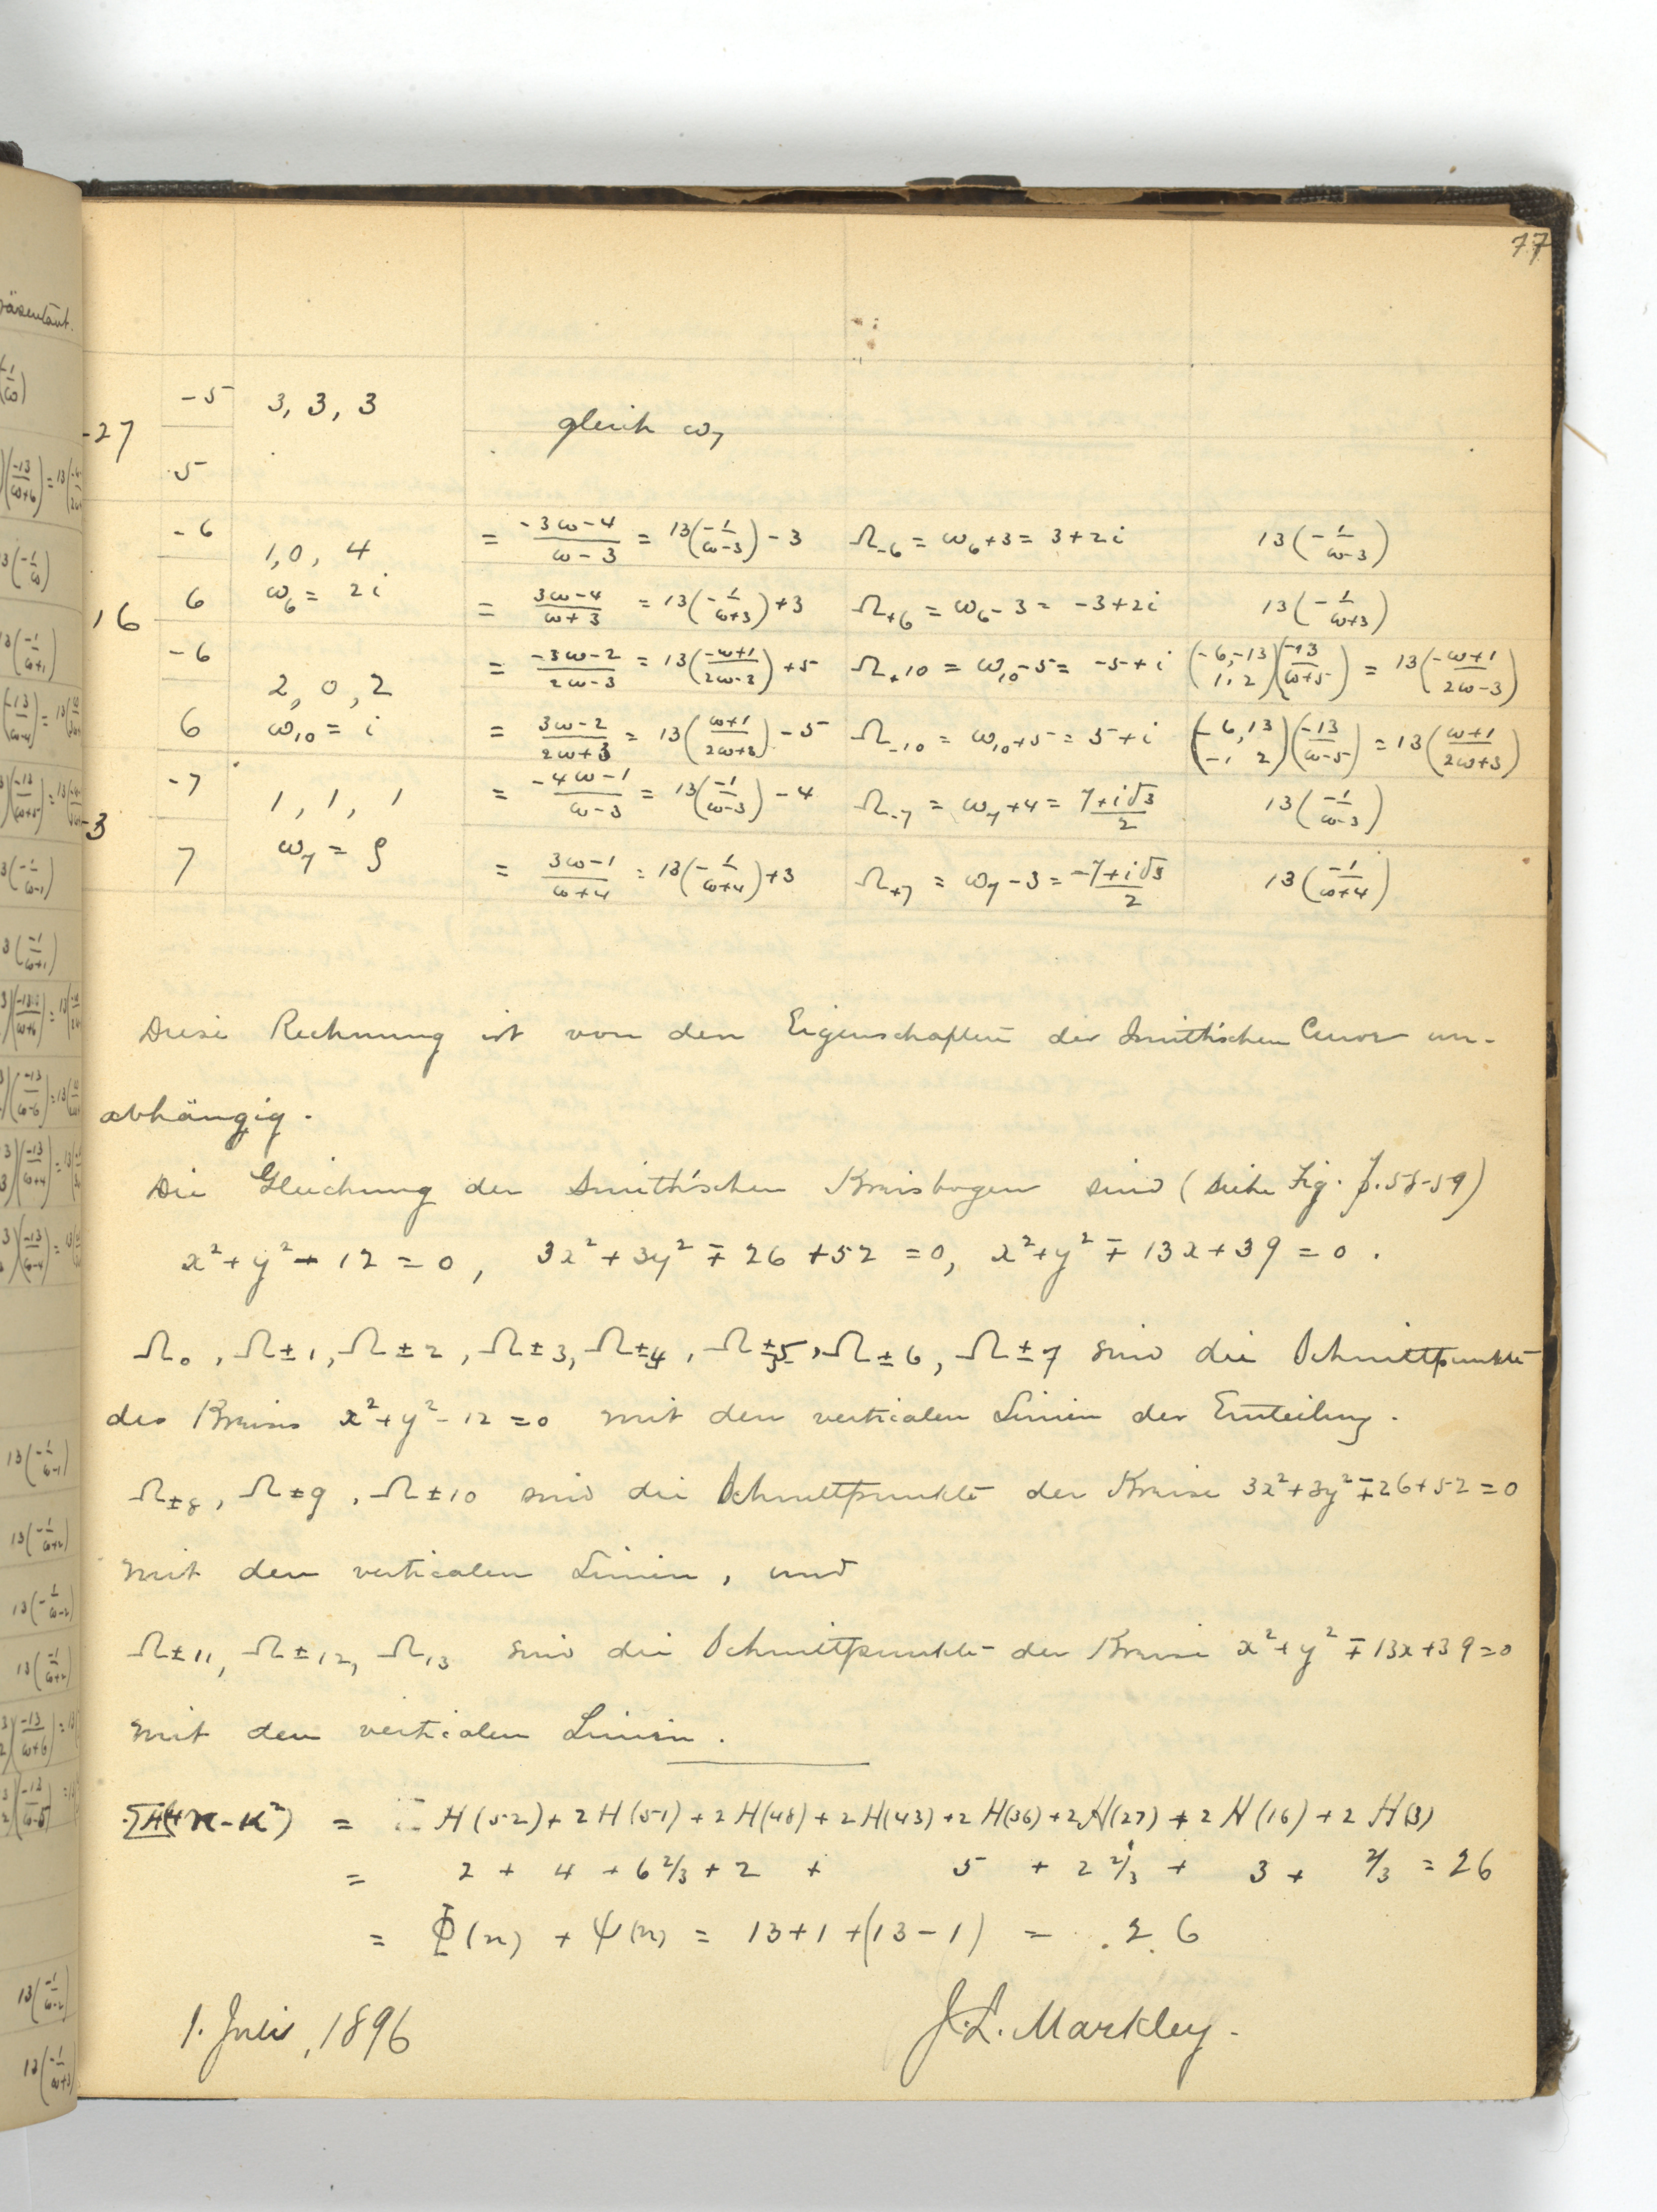 77
-27 -5 3, 3, 3 gleich ω₇
5
-6 1, 0, 4 = (-3ω-4)/(ω-3) = 13(-1/(ω-3)) - 3 Ω₋₆ = ω₆+3 = 3+2i 13(-1/(ω-3))
16 6 ω₆ = 2i = (3ω-4)/(ω+3) = 13(-1/(ω+3)) + 3 Ω₊₆ = ω₆-3 = -3+2i 13(-1/(ω+3))
-6 2, 0, 2 = (-3ω-2)/(2ω-3) = 13((-ω+1)/(2ω-3)) + 5 Ω₊₁₀ = ω₁₀-5 = -5+i (-6,-13 / 1, 2)(-13/(ω+5)) = 13((-ω+1)/(2ω-3))
6 ω₁₀ = i = (3ω-2)/(2ω+3) = 13((ω+1)/(2ω+3)) - 5 Ω₋₁₀ = ω₁₀+5 = 5+i (-6,13 / -1 2)(-13/(ω-5)) = 13((ω+1)/(2ω+3))
-3 -7 1, 1, 1 = (-4ω-1)/(ω-3) = 13(-1/(ω-3)) - 4 Ω₋₇ = ω₇+4 = (7+i√3)/2 13(-1/(ω-3))
7 ω₇ = ρ = (3ω-1)/(ω+4) = 13(-1/(ω+4)) + 3 Ω₊₇ = ω₇-3 = (-7+i√3)/2 13(-1/(ω+4))
Diese Rechnung ist von den Eigenschaften der Smith'schen Curve un-
abhängig.
Die Gleichung der Smith'schen Kreisbogen sind (siehe Fig. p. 58-59)
x²+y²-12=0, 3x²+3y²∓26+52=0, x²+y²∓13x+39=0.
Ω₀, Ω±1, Ω±2, Ω±3, Ω±4, Ω±5, Ω±6, Ω±7 sind die Schnittpunkte
des Kreises x²+y²-12=0 mit den verticalen Linien der Einteilung.
Ω±8, Ω±9, Ω±10 sind die Schnittpunkte der Kreise 3x²+3y²∓26+52=0
mit den verticalen Linien, und
Ω±11, Ω±12, Ω₁₃ sind die Schnittpunkte der Kreise x²+y²∓13x+39=0
mit den verticalen Linien.
ΣH(4n-κ²) = H(52)+2H(51)+2H(48)+2H(43)+2H(36)+2H(27)+2H(16)+2H(3)
= 2 + 4 + 6 2/3 + 2 + 5 + 2 2/3 + 3 + 2/3 = 26
= Φ(n) + Ψ(n) = 13+1+(13-1) = 26
1. Juli, 1896 J. L. Markley.